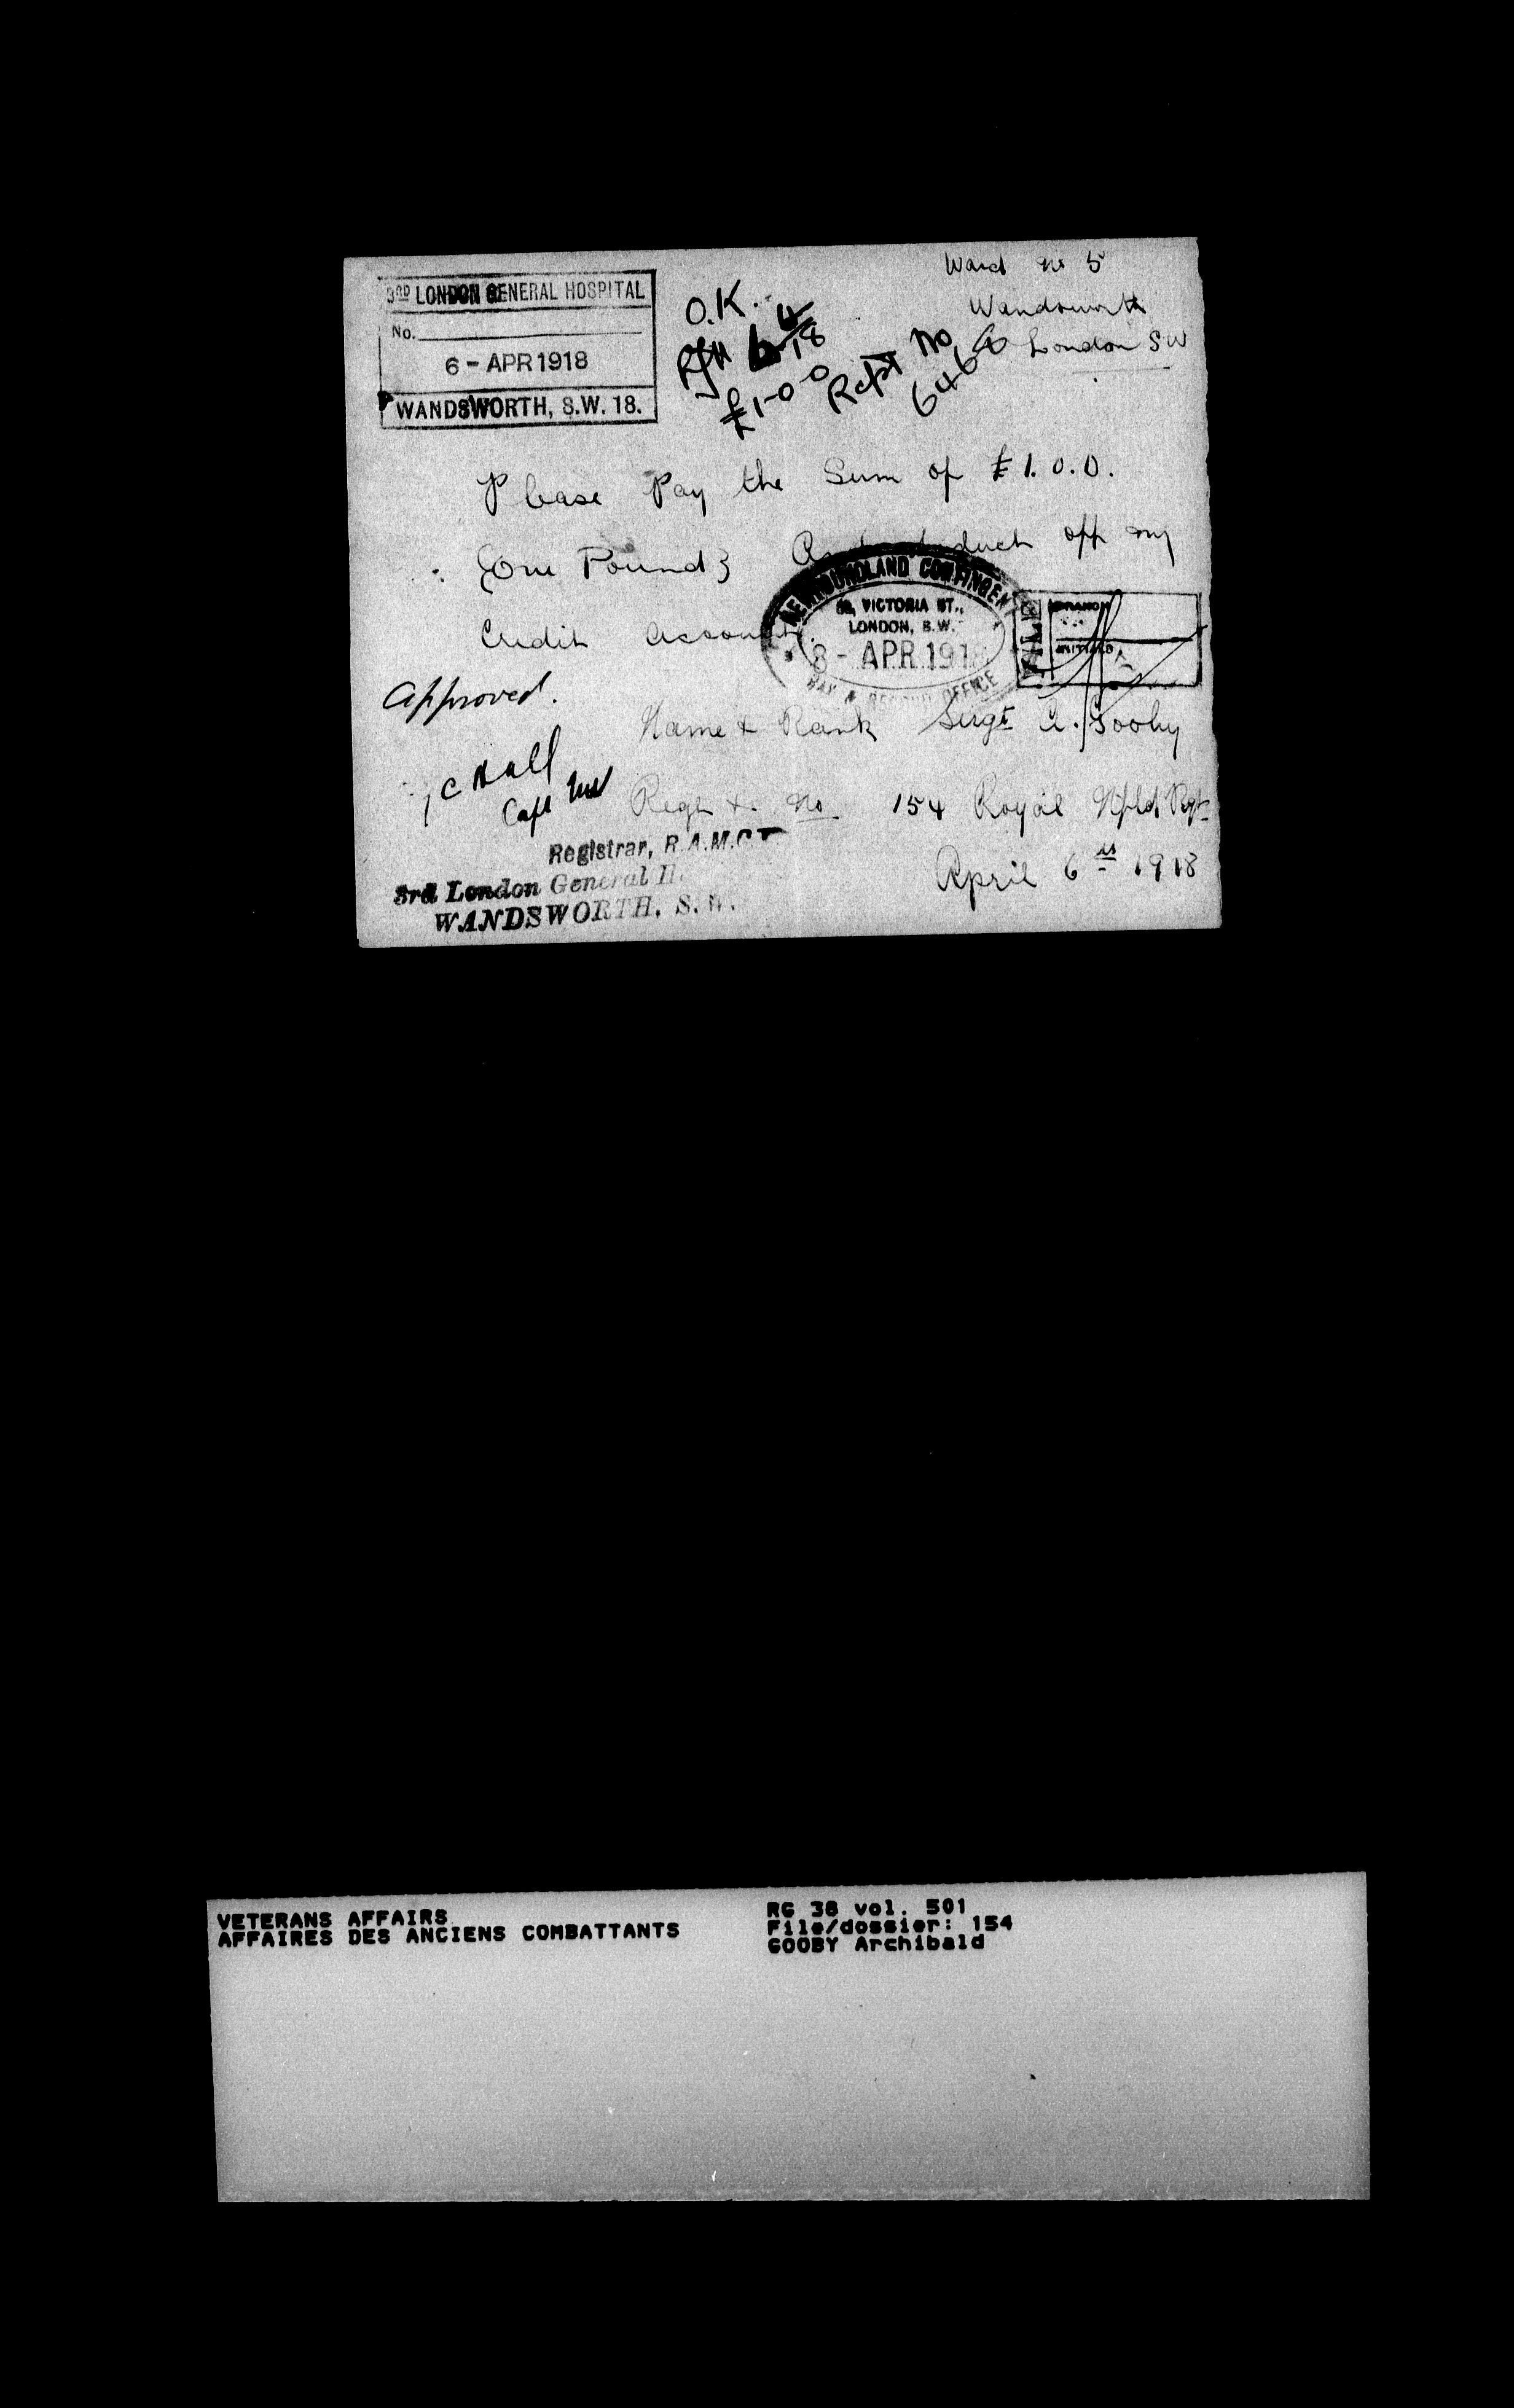 Ward No 5
Wandsworth
London SW
3RD LONDON GENERAL HOSPITAL
No.
6 - APR 1918
WANDSWORTH, S.W. 18.
O.K.
£1-0-0
Rcpt No
Please Pay the Sum of £1.0.0.
{One Pound} And deduct off my
Credit Account.
NEWFOUNDLAND CONTINGENT
VICTORIA ST.,
LONDON, S.W.
8 - APR 1918
PAY & RECORD OFFICE
BRANCH
INITIALS
Approved.
Name & Rank Sergt A. Gooby
Capt
Regt & No 154 Royal Nfld Rgt
Registrar, R.A.M.C.T
3rd London General H.
WANDSWORTH, S.W.
April 6th 1918
VETERANS AFFAIRS
AFFAIRES DES ANCIENS COMBATTANTS
RG 38 vol. 501
File/dossier: 154
GOOBY Archibald